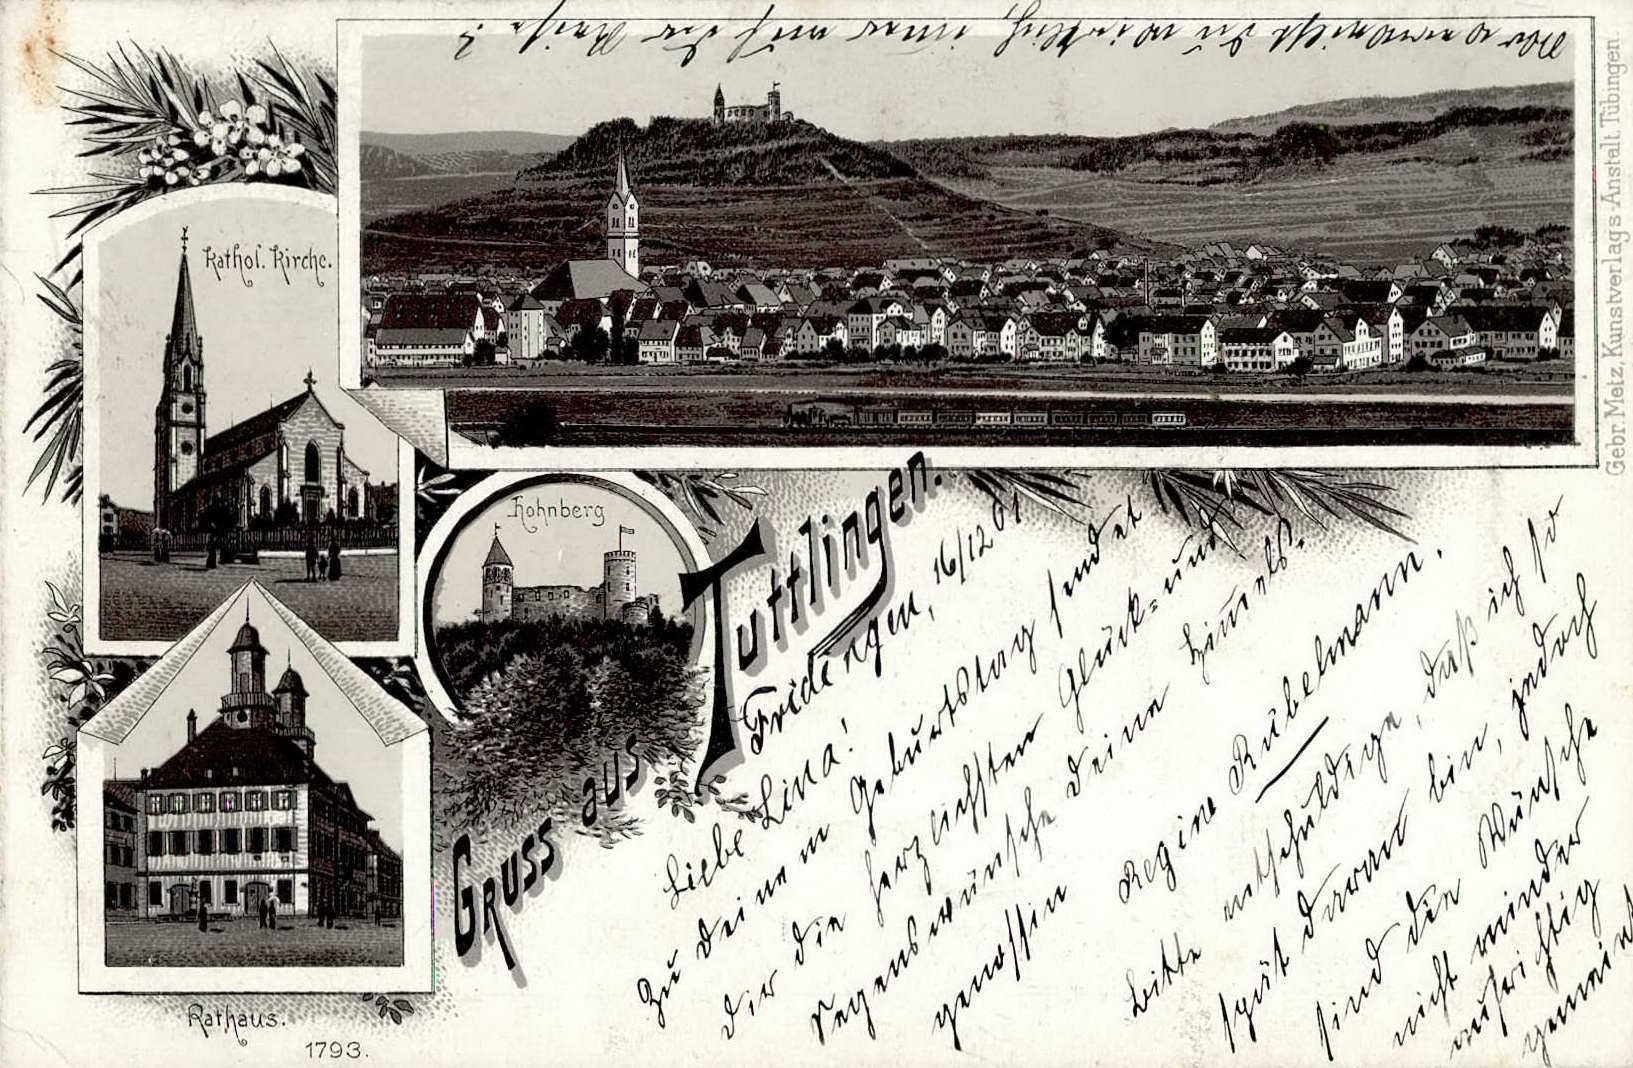 Kathol. Kirche.
Hohnberg
Rathaus.
1793.
Gruss aus Tuttlingen.
Gebr. Metz, Kunstverlags-Anstalt, Tübingen.
Fridingen, 16/12 01
Liebe Lina!
Zu Deinem Geburtstag sendet
Dir die herzlichsten Glück- und
Segenswünsche Deine Himmels-
genossin
Regine Rübelmann.
Bitte entschuldige, daß ich so
spät daran bin, jedoch
sind die Wünsche
nicht minder
aufrichtig
gemeint
Du wirklich immer auf der Reise?